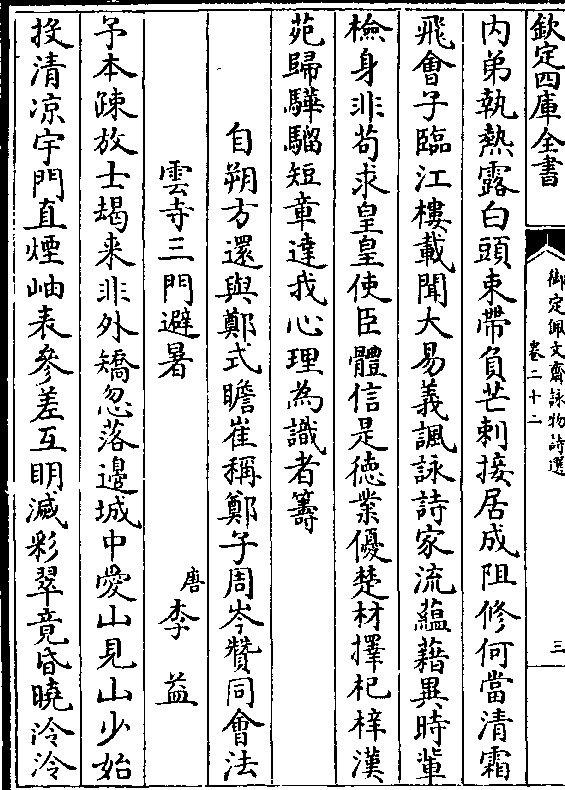 欽定四庫全書
御定佩文齋詠物詩選
卷二十二
三
内弟執熱露白頭束帶負芒刺接居成阻修何當清霜
飛會子臨江樓載聞大易義諷詠詩家流蘊藉異時輩
檢身非苟求皇皇使臣體信是德業優楚材擇杞梓漢
苑歸驊騮短章達我心理為識者籌
自朔方還與鄭式瞻崔稱鄭子周岑贊同會法
雲寺三門避暑
唐李益
予本疎放士朅来非外矯忽落邊城中愛山見山少始
投清凉宇門直煙岫表參差互明滅彩翠竟昏曉泠泠